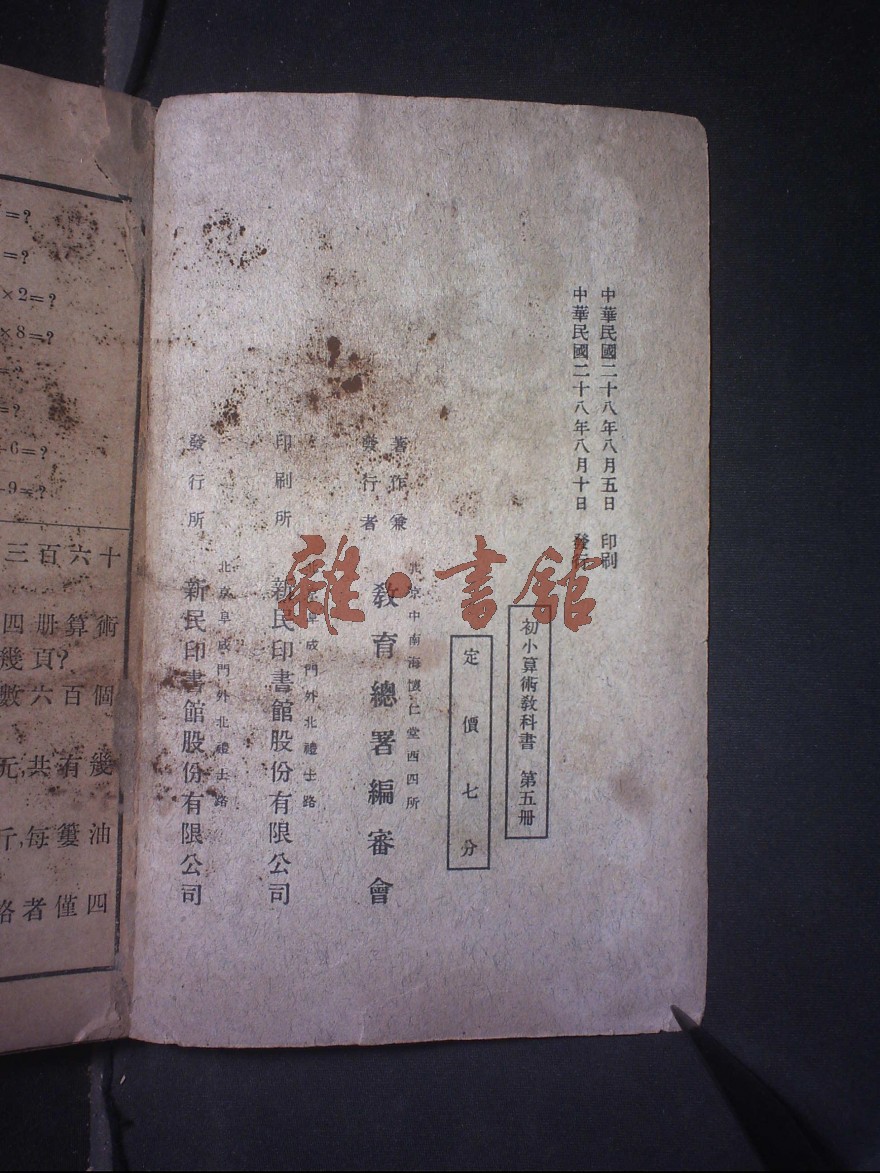 中華民國二十八年八月五日　印刷
中華民國二十八年八月十日　發行
初小算術教科書　第五册
定價七分
著作兼
發行者
北京中南海懷仁堂西四所
教育總署編審會
印刷所
北京阜成門外北禮士路
新民印書館股份有限公司
發行所
北京阜成門外北禮士路
新民印書館股份有限公司
雜·書館
=?
=?
×2=?
×8=?
=?
=?
-6=?
-9=?
三百六十
四册算術
幾頁?
數六百個
元,共有幾
斤,每簍油
者僅四